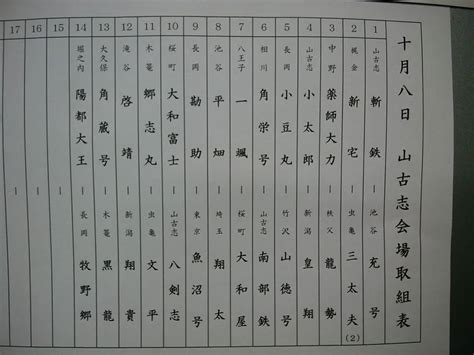 十月八日 山古志会場取組表
1 山古志 斬鉄 ー 池谷 充号
2 梶金 新宅 ー 虫亀 三太夫 (2)
3 中野 薬師大力 ー 秩父 龍勢
4 山古志 小太郎 ー 新潟 皇翔
5 長岡 小豆丸 ー 竹沢 山徳号
6 相川 角栄号 ー 山古志 南部鉄
7 八王子 一颯 ー 桜町 大和屋
8 池谷 平畑 ー 埼玉 翔太
9 長岡 勘助 ー 東京 魚沼号
10 桜町 大和富士 ー 山古志 八剣志
11 木篭 郷志丸 ー 虫亀 文平
12 滝谷 啓靖 ー 新潟 翔貴
13 大久保 角蔵号 ー 木篭 黒龍
14 堀之内 陽都大王 ー 長岡 牧野郷
15 ー
16 ー
17 ー